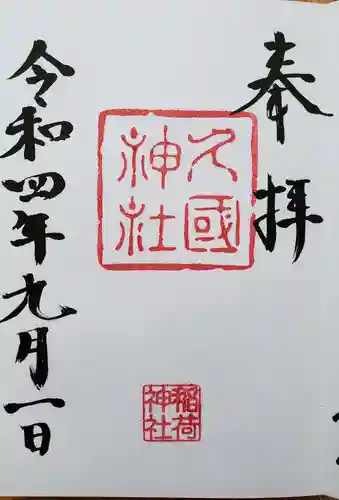 奉拝
久國神社
稲荷神社
令和四年九月一日